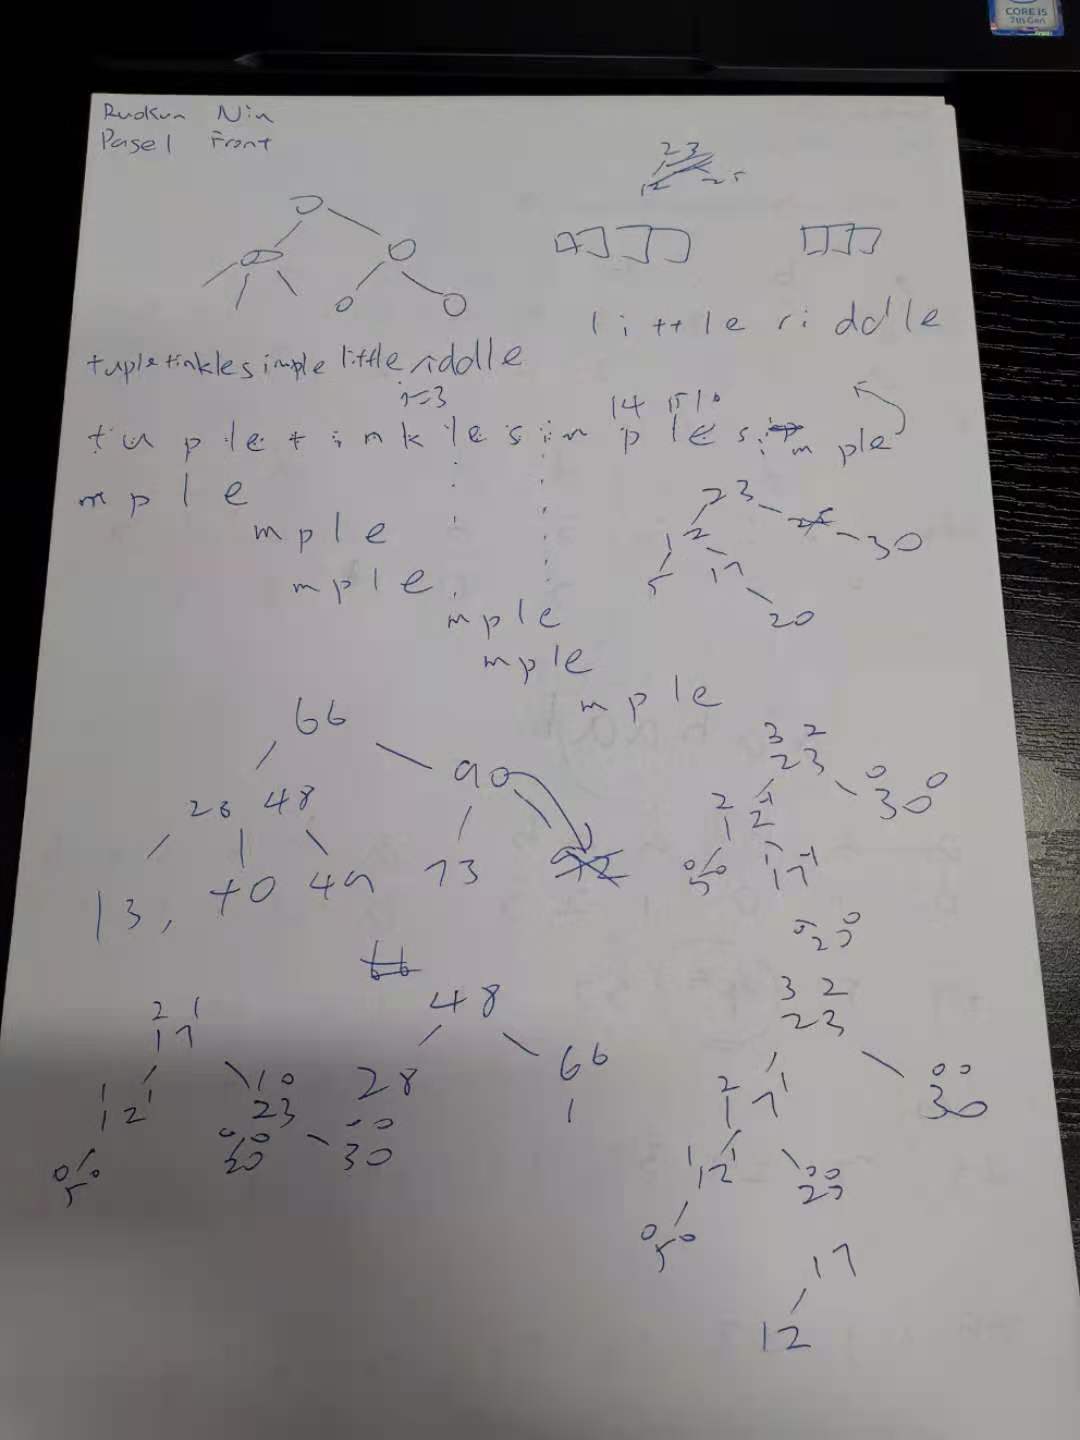 CORE i5
7th Gen
Page 1 Front
23
12 25
little riddle
tupletinklesimplelittleriddle
i=3
14 15 16
tupletinklesimplesimple
mple
mple
mple
mple
mple
mple
23
12 25 30
5 17
20
66
28 48 90
13, 40 49 73 92
3 2
23
2 -1 0 0
12 30
0 0 1 -1
5 17
0 0
20
66
48
28 66
2 1
17
1 1 1 0
12 23
0 0 0 0 0 0
5 20 30
3 2
23
2 1 0 0
17 30
1 1 0 0
12 20
0 0
5
17
12